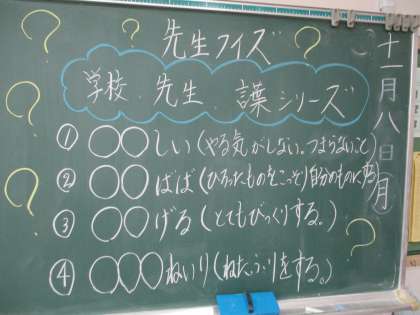 先生クイズ
学校、先生、言葉シリーズ
① ○○しい(やる気がしない。つまらないこと)
② ○○ばば(ひろったものをこっそり自分のものにする)
③ ○○げる(とてもびっくりする。)
④ ○○○ねいり(ねたふりをする。)
十一月八日(月)